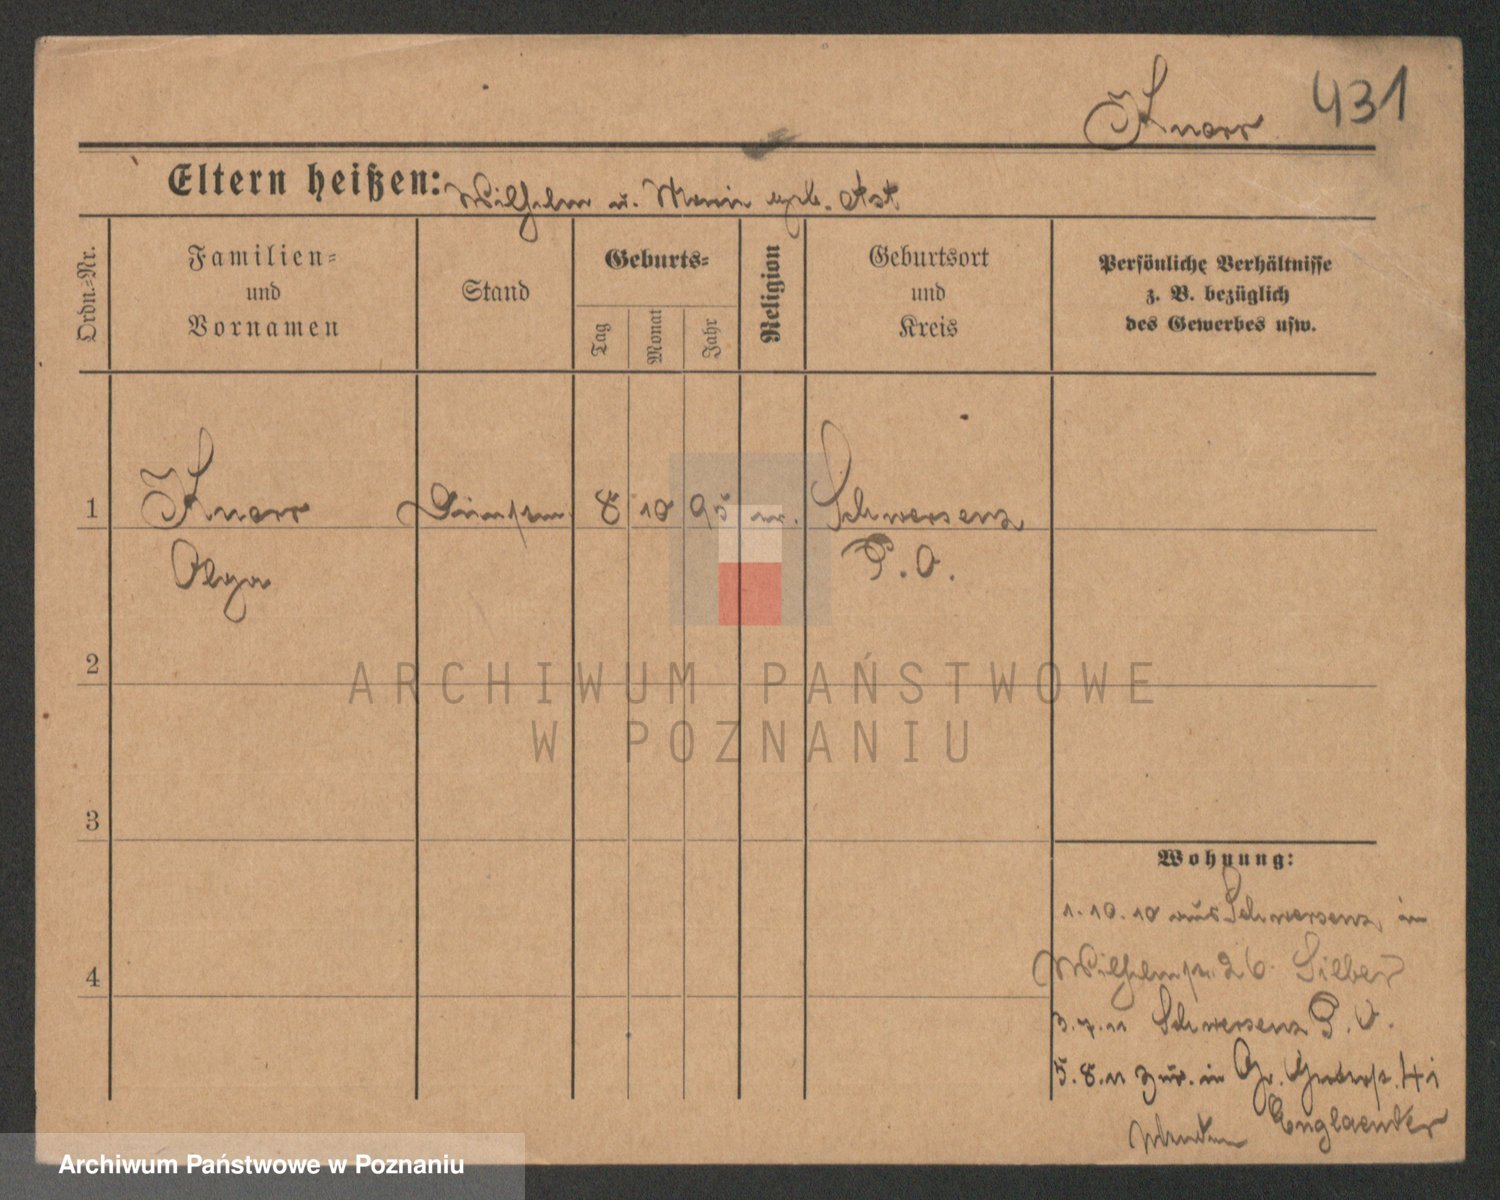 Knorr 431
Eltern heißen: Wilhelm u. Marie geb. Ast
Ordn.-Nr.
Familien-
und
Vornamen
Stand
Geburts-
Tag
Monat
Jahr
Religion
Geburtsort
und
Kreis
Persönliche Verhältnisse
z. B. bezüglich
des Gewerbes usw.
1 Knorr 8 10 95 Schwersenz
Olga P. O.
2
ARCHIWUM PAŃSTWOWE
W POZNANIU
3
Wohnung:
1.10.10 aus Schwersenz in
4 Wilhelmstr. 26 Silber
3.7.11 Schwersenz P. O.
5.8.11 zur. in Gr. 41
Englaender
Archiwum Państwowe w Poznaniu